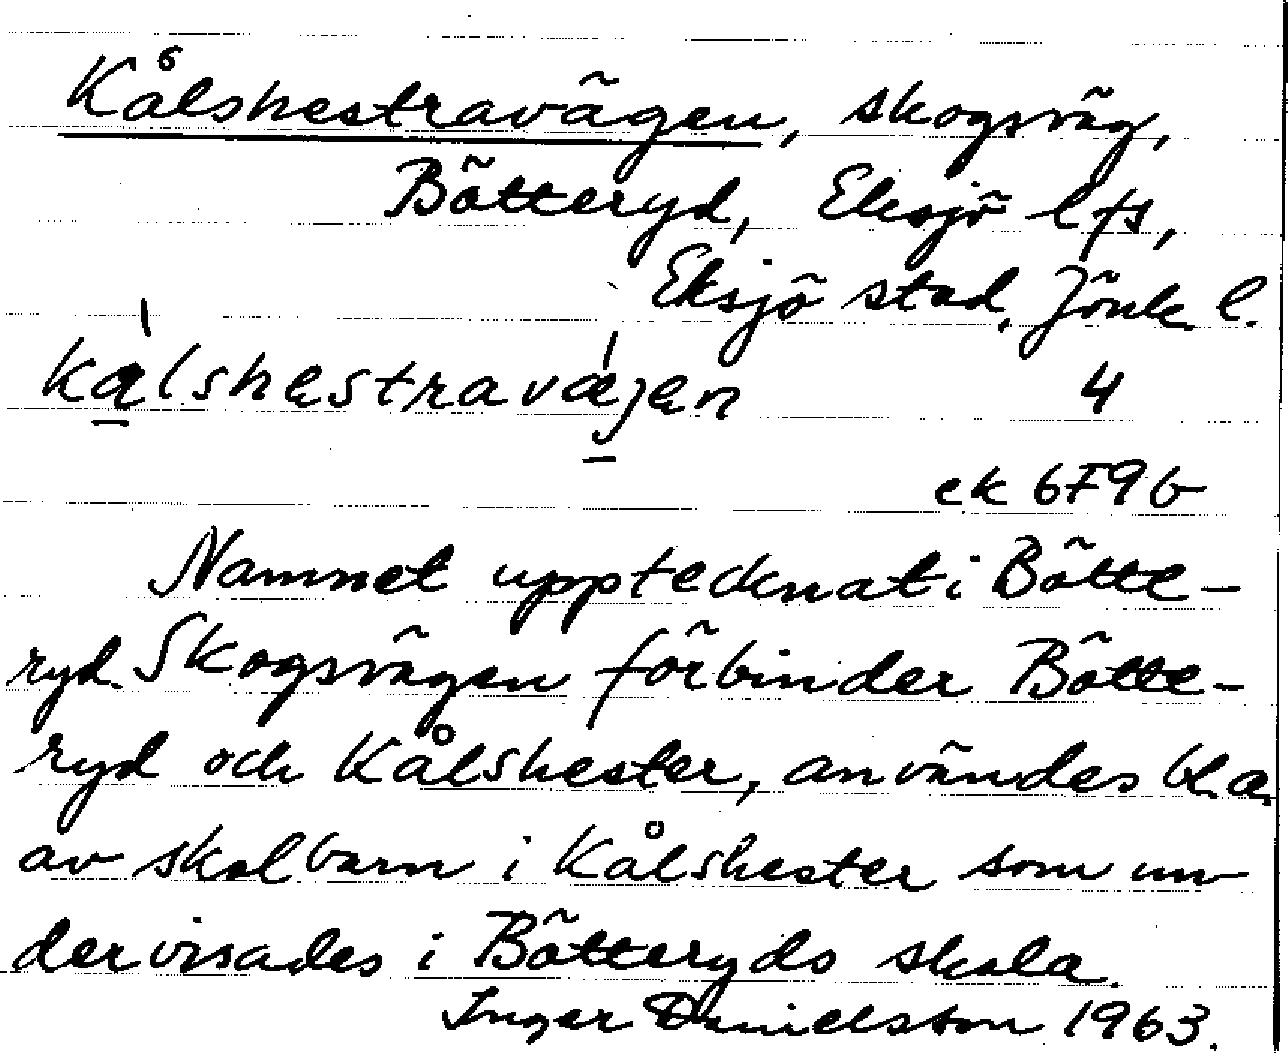 Kålshestravägen, skogsväg,
Bötteryd, Eksjö lfs,
Eksjö stad, Jönk. l.
kålshestravæjen 4
ek 6F9b
Namnet upptecknat i Bötte-
ryd. Skogsvägen förbinder Bötte-
ryd och Kålshester, användes bl.a.
av skolbarn i Kålshester som un-
dervisades i Bötteryds skola.
Inger Danielsson 1963.